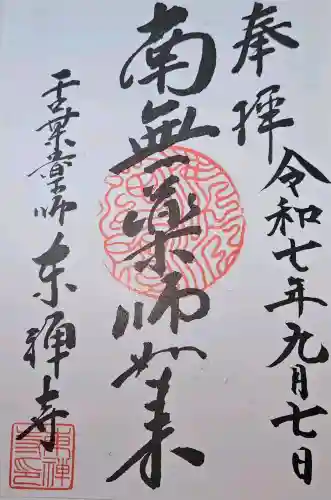 奉拝
令和七年九月七日
南無薬師如来
千葉薬師
東禅寺